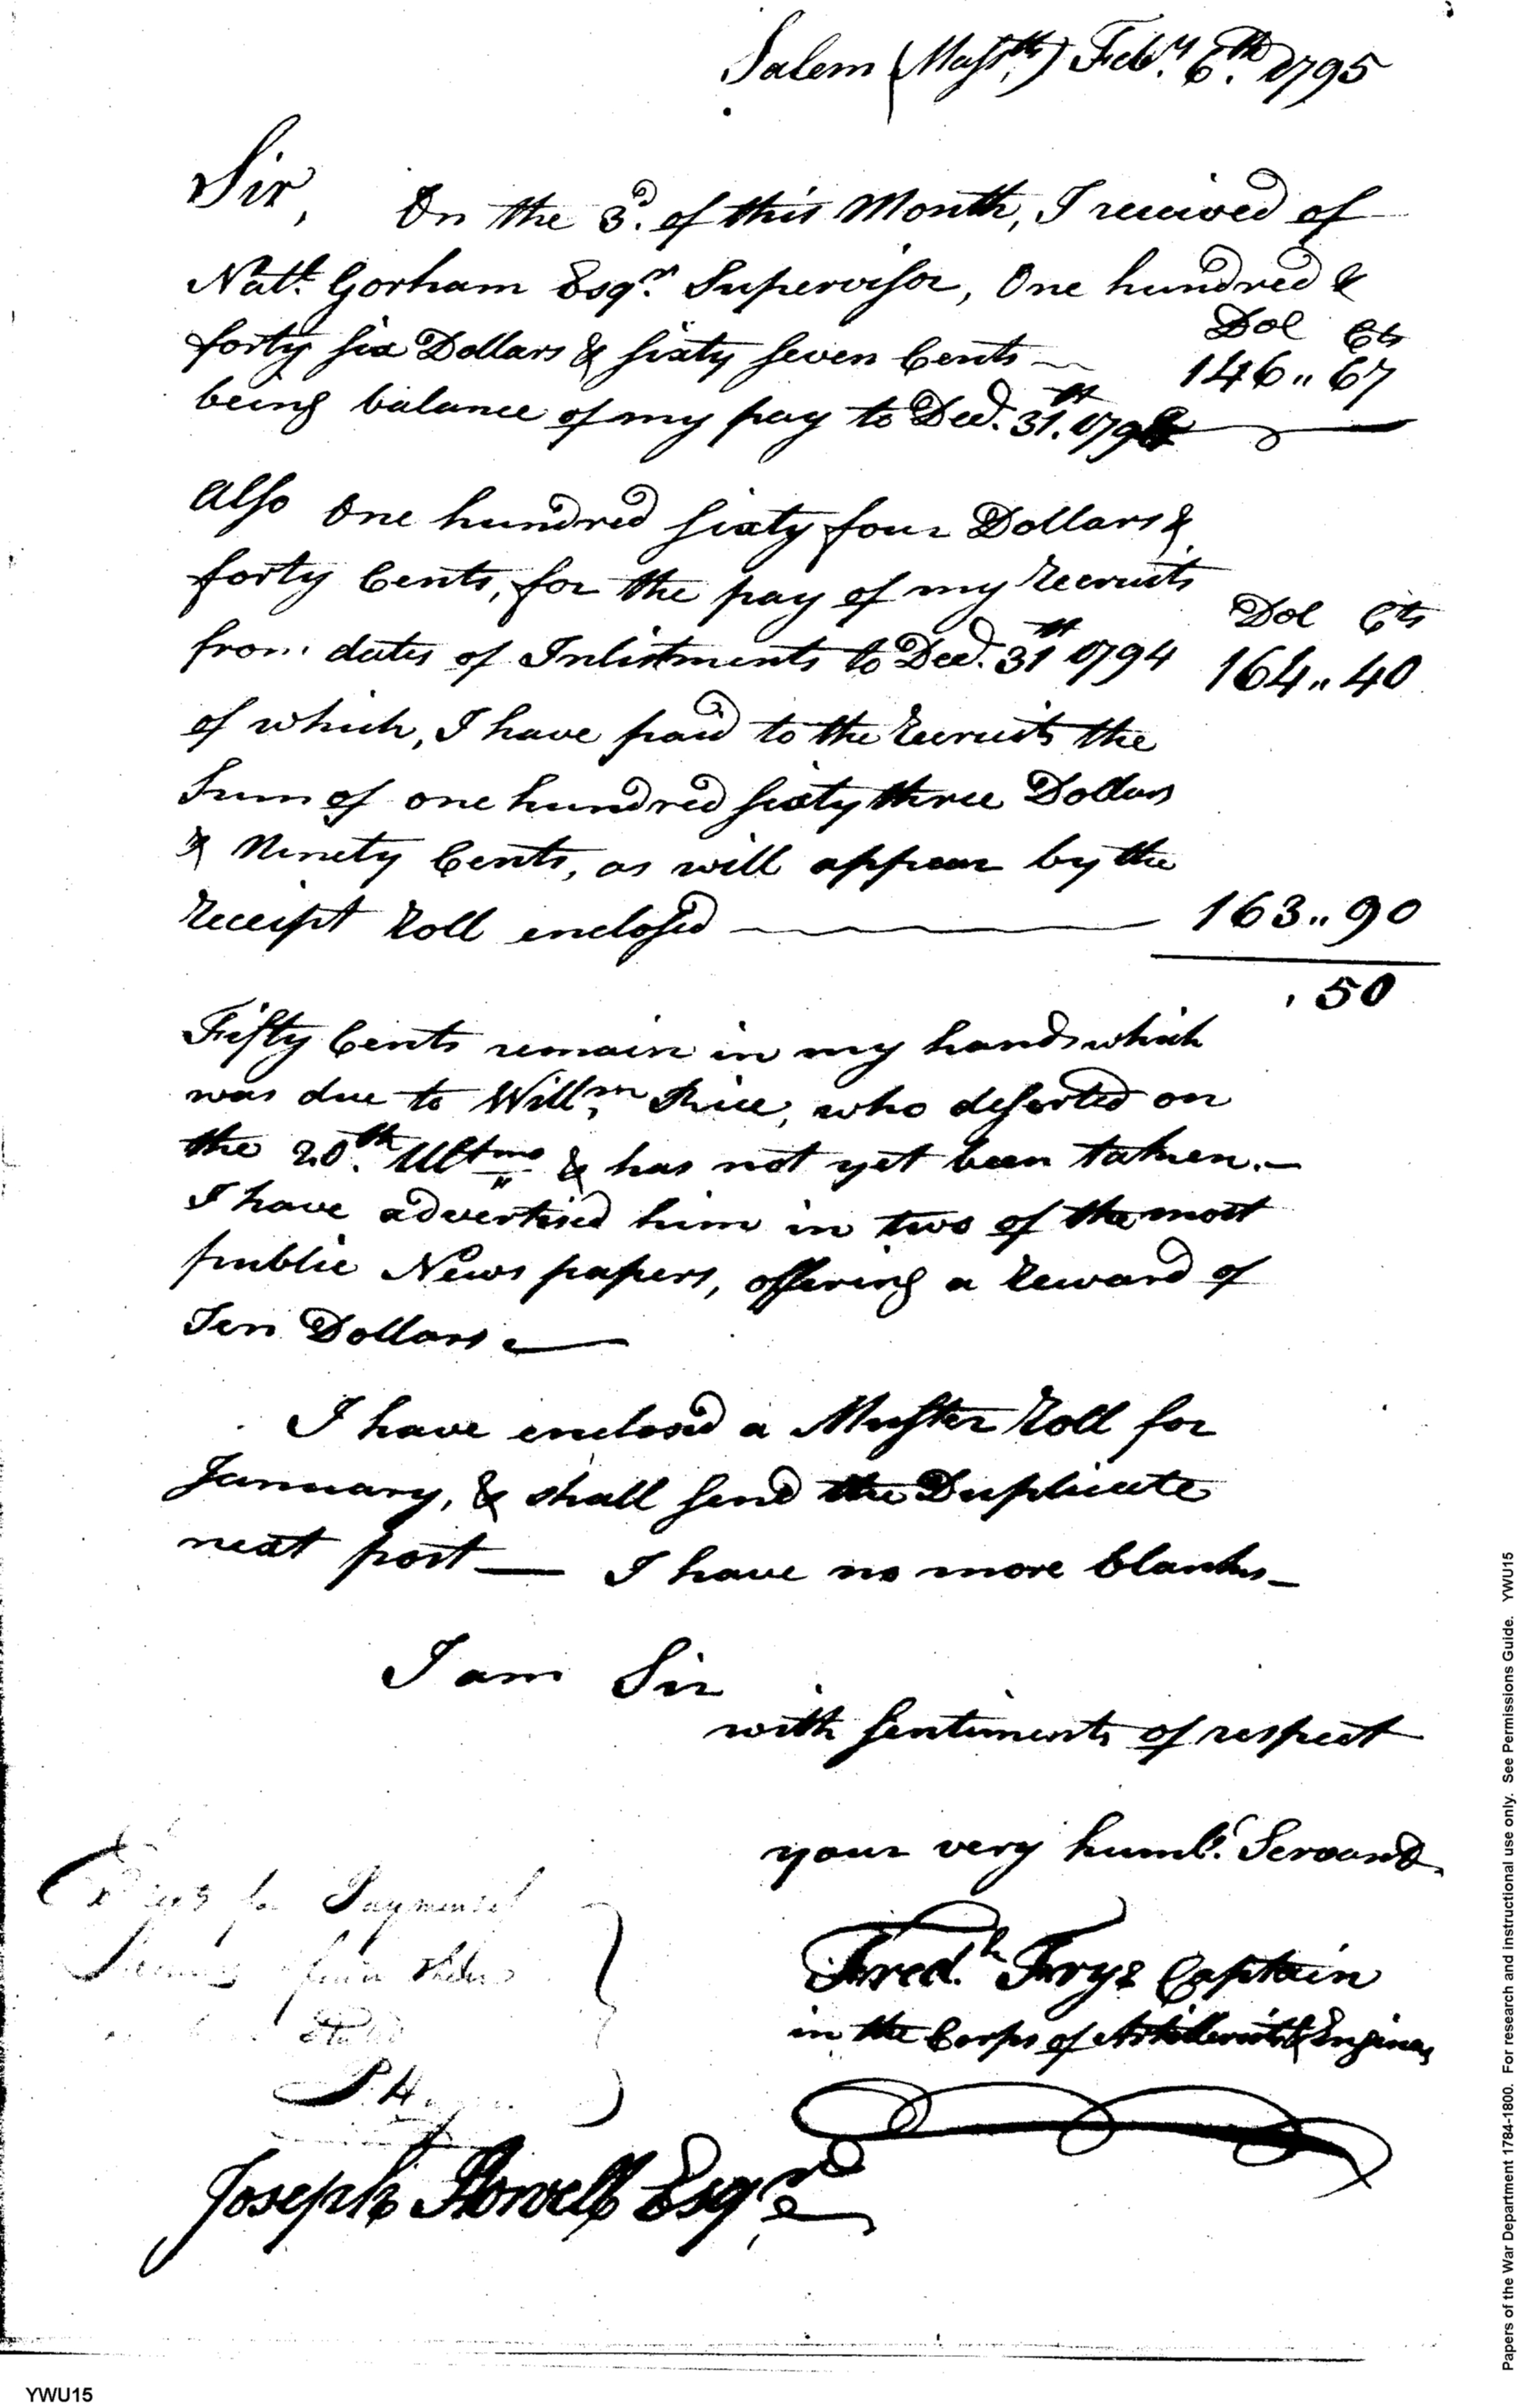 Salem (Massts.) Feby. 6th. 1795
Sir, On the 3d. of this Month, I received of
Natl. Gorham Esqr. Supervisor, One hundred &
forty six Dollars & sixty seven Cents — Dol Cts 146 „ 67
being balance of my pay to Decd. 31st. 1794
Also One hundred sixty four Dollars &
forty Cents, for the pay of my Recruits
from dates of Inlistments to Decd. 31st 1794 Dol Cts 164 „ 40
of which, I have paid to the Recruits the
Sum of one hundred sixty three Dollars
& Ninety Cents, as will appear by the
Receipt Roll enclosed — 163 „ 90
, 50
Fifty Cents remain in my hands which
was due to Willm. Rice, who deserted on
the 20th. Ultmo & has not yet been taken. —
I have advertised him in two of the most
public News papers, offering a Reward of
Ten Dollars —
I have enclosed a Muster Roll for
January, & shall send the Duplicate
next post — I have no more blanks —
I am Sir
with sentiments of respect
your very humbl. Servant
Fredk. Frye Captain
in the Corps of Artillerists & Engineers
for Payment
Joseph Howell Esqr.
Papers of the War Department 1784-1800. For research and instructional use only. See Permissions Guide. YWU15
YWU15